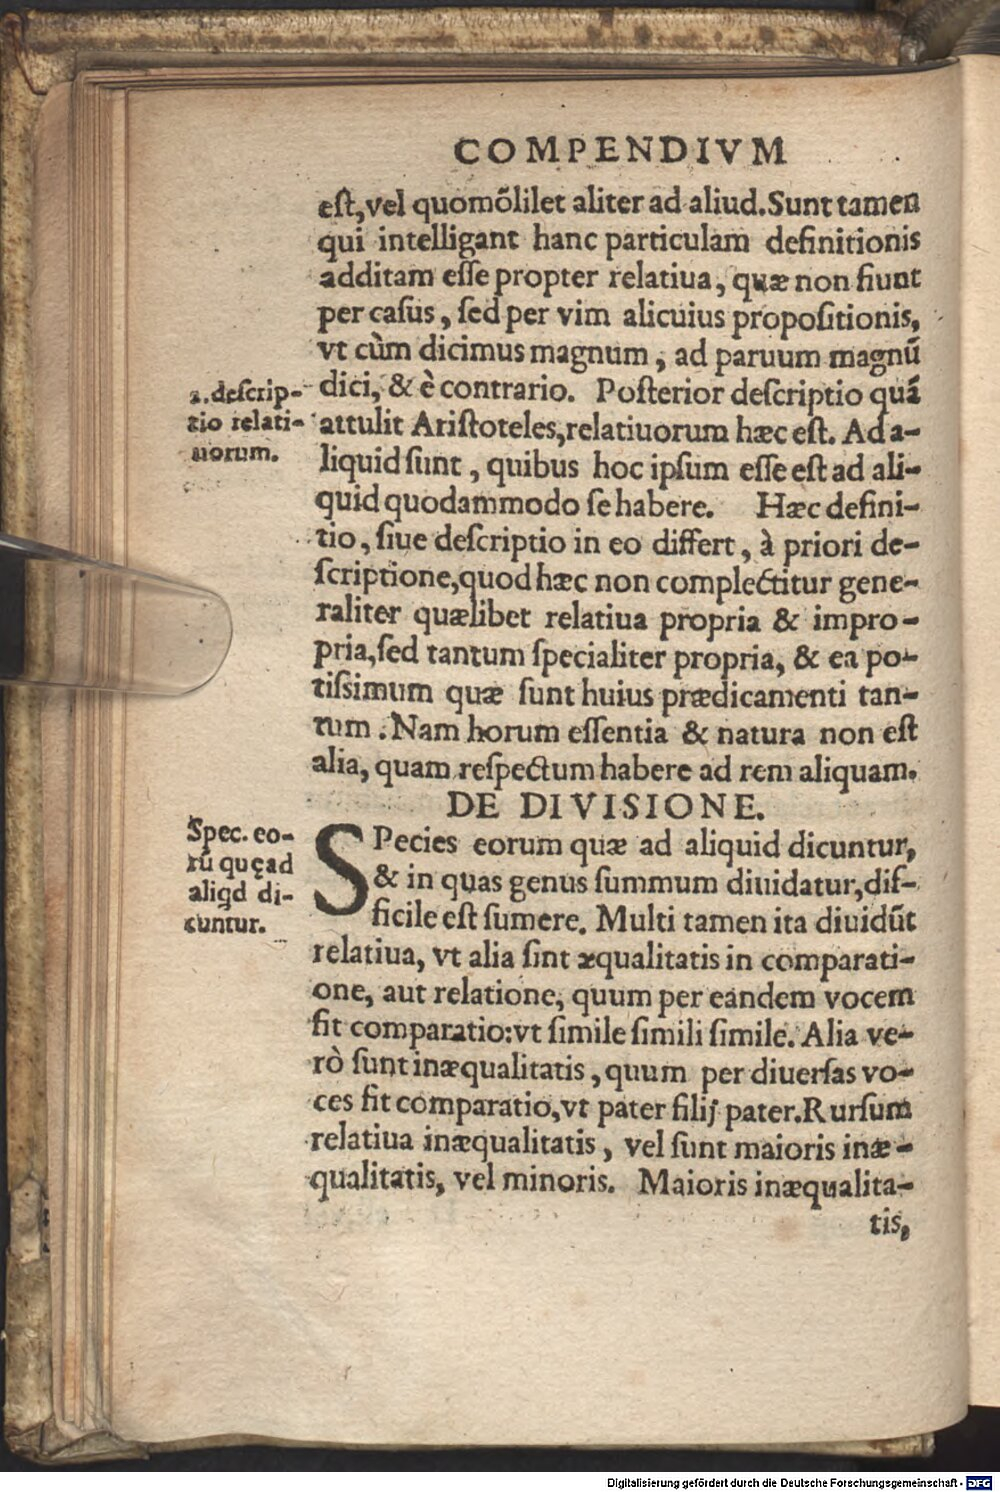 COMPENDIVM
eſt, vel quomõlilet aliter ad aliud. Sunt tamen
qui intelligant hanc particulam definitionis
additam eſſe propter relatiua, quæ non fiunt
per caſus, ſed per vim alicuius propoſitionis,
vt cùm dicimus magnum, ad paruum magnũ
dici, & è contrario. Poſterior deſcriptio quã
attulit Ariſtoteles, relatiuorum hæc eſt. Ad a-
liquid ſunt, quibus hoc ipſum eſſe eſt ad ali-
quid quodammodo ſe habere. Hæc defini-
tio, ſiue deſcriptio in eo differt, à priori de-
ſcriptione, quod hæc non complectitur gene-
raliter quælibet relatiua propria & impro-
pria, ſed tantum ſpecialiter propria, & ea po-
tiſsimum quæ ſunt huius prædicamenti tan-
tum. Nam horum eſſentia & natura non eſt
alia, quam reſpectum habere ad rem aliquam.
2. deſcrip-
tio relati-
uorum.
DE DIVISIONE.
SPecies eorum quæ ad aliquid dicuntur,
& in quas genus ſummum diuidatur, dif-
ficile eſt ſumere. Multi tamen ita diuidũt
relatiua, vt alia ſint æqualitatis in comparati-
one, aut relatione, quum per eandem vocem
fit comparatio: vt ſimile ſimili ſimile. Alia ve-
rò ſunt inæqualitatis, quum per diuerſas vo-
ces fit comparatio, vt pater filij pater. Rurſum
relatiua inæqualitatis, vel ſunt maioris inæ-
qualitatis, vel minoris. Maioris inæqualita-
tis,
Spec. eo-
rũ quę ad
aliqd di-
cuntur.
Digitalisierung gefördert durch die Deutsche Forschungsgemeinschaft - DFG